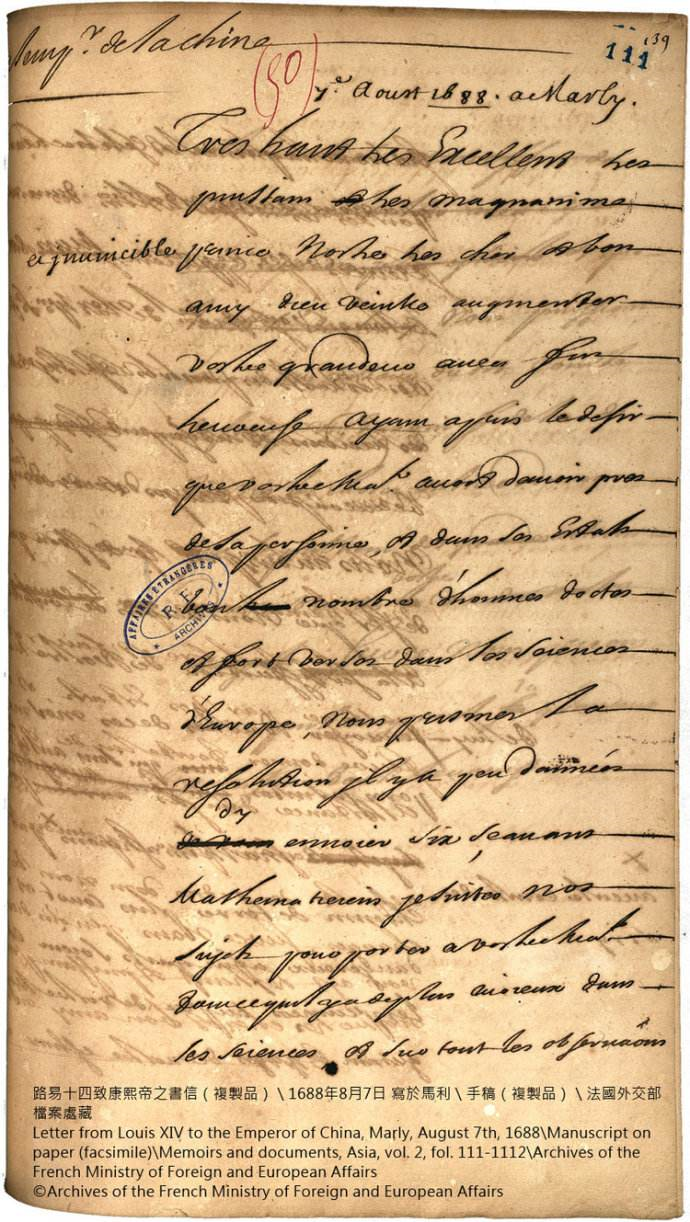 Aempr. de la chine
(30)
139
111
7e Aoust 1688. a Marly.
Tres haut tres Excellent tres
puissant et tres magnanime
et jnuincible prince Nostre tres cher et bon
amy dieu veuille augmenter
vostre grandeur auec fin
heureuse ayant apris le desir
que vostre Mate. auoit d'auoir pres
de sa personne, et dans ses Estats
bon nombre d'hommes doctes
et fort verses dans les sciences
d'Europe, Nous prismes La
resolution il y a peu d'années
dy
ennoier six sçauans
Mathematiciens jesuites nos
sujets pour porter a vostre Mate.
tout ce quil y a de plus curieux dans
les sciences et sur tout les obseruaons
AFFAIRES ETRANGERES
R.F.
ARCHIVES
路易十四致康熙帝之書信（複製品）\ 1688年8月7日 寫於馬利 \ 手稿（複製品）\ 法國外交部
檔案處藏
Letter from Louis XIV to the Emperor of China, Marly, August 7th, 1688\Manuscript on
paper (facsimile)\Memoirs and documents, Asia, vol. 2, fol. 111-1112\Archives of the
French Ministry of Foreign and European Affairs
©Archives of the French Ministry of Foreign and European Affairs